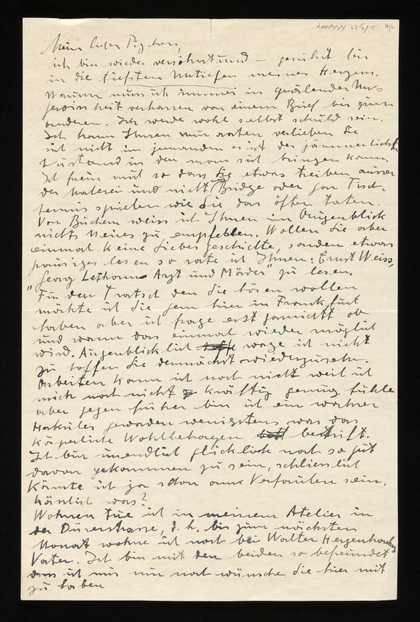 Mein lieber
ich bin wieder versöhnt und — gerührt bin
in die tiefsten Untiefen meines Herzens.
Warum muss ich immer in quälender Un-
gewissheit verharren von einem Brief bis zum
anderen. Ich werde wohl selbst schuld sein.
Ich kann Ihnen nur raten verlieben Sie
ist nicht in jemanden es ist der jämmerlichste
Zustand in den man sich bringen kann.
Ich freue mich so dass Sie etwas treiben ausser
der Malerei und nicht Bridge oder gar Tisch-
tennis spielen wie Sie das öfter taten.
Von Büchern weiss ich Ihnen im Augenblick
nichts Neues zu empfehlen. Wollen Sie aber
einmal keine Liebesgeschichte, sondern etwas
grausiges lesen so rate ich Ihnen: Ernst Weiss,
"Georg Letham Arzt und Mörder" zu lesen.
Für den Tratsch den Sie hören wollen
möchte ich Sie gern hier in Frankfurt
haben aber ich frage erst gar nicht ob
und wann das einmal wieder möglich
wird. Augenblicklich wage ich nicht
zu hoffen Sie demnächst wiederzusehn.
Arbeiten kann ich noch nicht weil ich
mich noch nicht kräftig genug fühle
aber gegen früher bin ich ein wahrer
Herkules geworden wenigstens was das
körperliche Wohlbehagen betrifft.
Ich bin unendlich glücklich noch so gut
davon gekommen zu sein, schliesslich
könnte ich ja schon am Verfaulen sein.
Hässlich was?
Wohnen tue ich in meinem Atelier in
der Dürerstrasse, d. h. bis zum nächsten
Monat wohne ich noch bei Walter
Vater. Ich bin mit den beiden so befreundet
dass ich mir nur noch wünsche Sie hier mit
zu haben